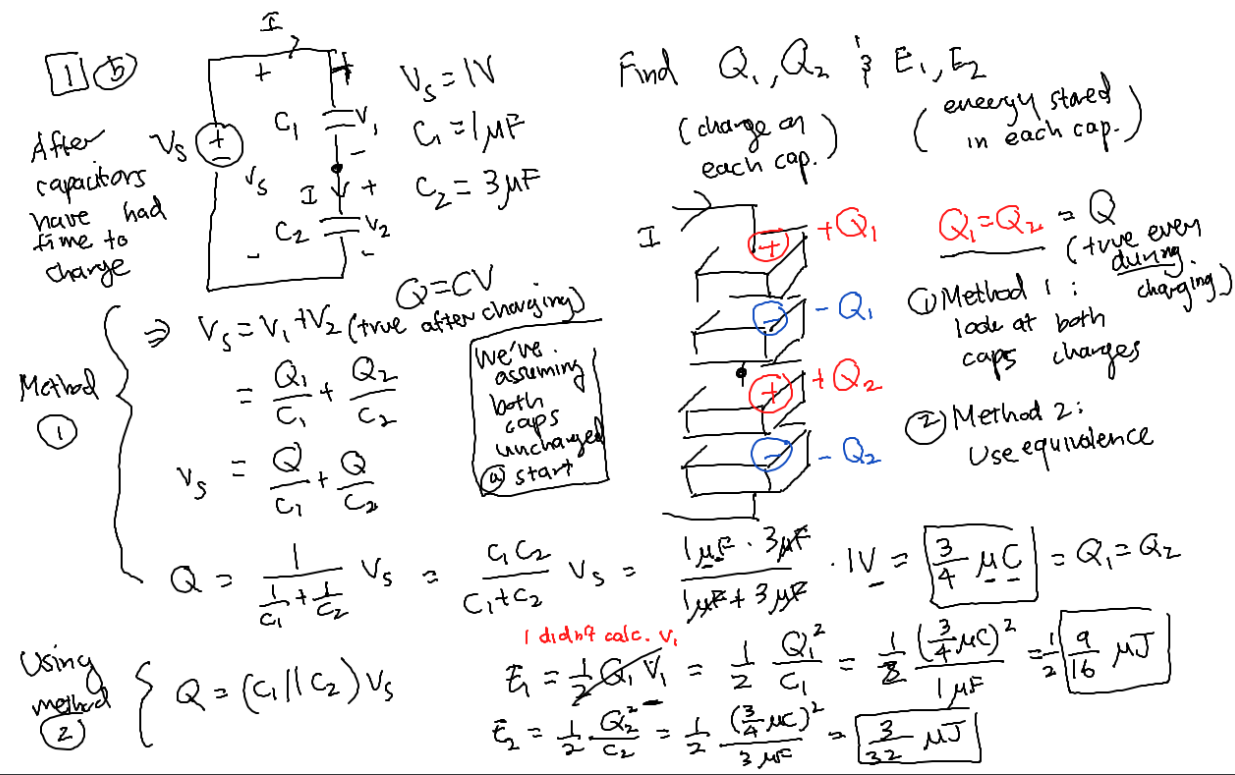 1 b
After
capacitors
have had
time to
charge
I
+
Vs
+
-
Vs
-
C1
+
V1
-
I
+
C2
V2
-
Vs = 1V
C1 = 1μF
C2 = 3μF
Find Q1, Q2 & E1, E2
(charge on
each cap.)
(energy stored
in each cap.)
I
+ +Q1
- -Q1
+ +Q2
- -Q2
Q1=Q2 = Q
(true even
during
charging)
① Method 1:
look at both
caps charges
② Method 2:
Use equivalence
Q=CV
Method
①
⇒ Vs = V1 + V2 (true after charging)
= Q1/C1 + Q2/C2
Vs = Q/C1 + Q/C2
We've
assuming
both
caps
uncharged
@ start
Q = 1/(1/C1 + 1/C2) Vs = C1C2/(C1+C2) Vs = (1μF · 3μF)/(1μF + 3μF) · 1V = 3/4 μC = Q1 = Q2
Using
method
②
Q = (C1||C2) Vs
I didn't calc. V1
E1 = 1/2 Q1 V1 = 1/2 Q1²/C1 = 1/2 (3/4 μC)²/1μF = 1/2 9/16 μJ
E2 = 1/2 · Q2²/C2 = 1/2 (3/4 μC)²/3μF = 3/32 μJ